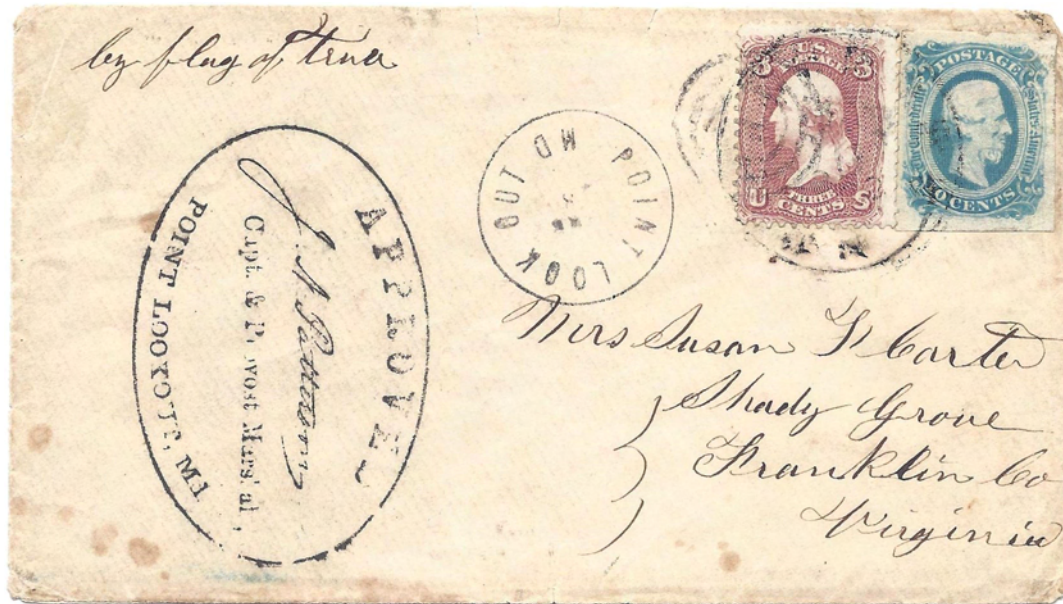 by flag of Truce
APPROVED
Capt. & Provost Marshal,
POINT LOOKOUT, Md
POINT LOOK OUT MD
3 3
U.S.
POSTAGE
THREE
CENTS
U S
POSTAGE
The Confederate States of America
CENTS
Mrs Susan F Carter
Shady Grove
Franklin Co
Virginia